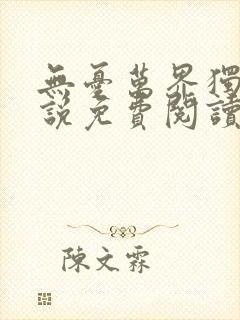 無憂萬界獨
說免費閱讀
陳文霖